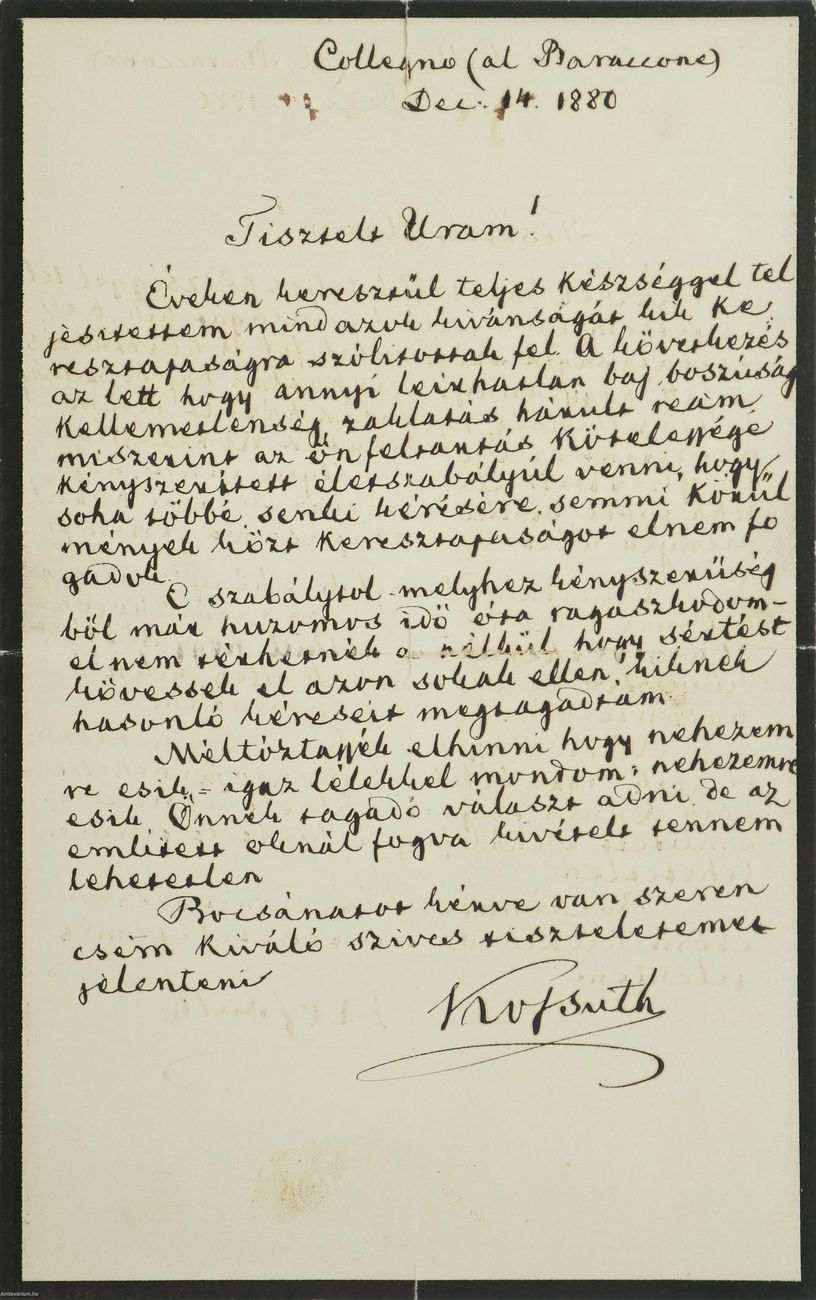 Collegno (al Baraccone)
Dec. 14. 1880
Tisztelt Uram!
Éveken keresztül teljes készséggel tel
jesitettem mindazok kivánságát kik ke
resztapaságra szólitottak fel. A következés
az lett hogy annyi leirhatlan baj, boszúság
kellemetlenség, zaklatás hárult reám
miszerint az önfeltartás kötelessége
kényszeritett életszabályúl venni, hogy
soha többé, senki kérésére, semmi körül
mények közt keresztapaságot elnem fo
gadok.
E szabálytol melyhez kényszerüség
ből már huzomos idő óta ragaszkodom-
el nem térhetnék a nélkül hogy sértést
kövessek el azon sokak ellen, kiknek
hasonló kéreseit megtagadtam.
Méltóztassék elhinni hogy nehezem
re esik, = igaz lélekkel mondom: nehezemre
esik Önnek tagadó választ adni, de az
emlitett oknál fogva kivételt tennem
lehetetlen
Bocsánatot kérve van szeren
csém kiváló szives tiszteletemet
jelenteni
Kossuth
Antikvarium.hu